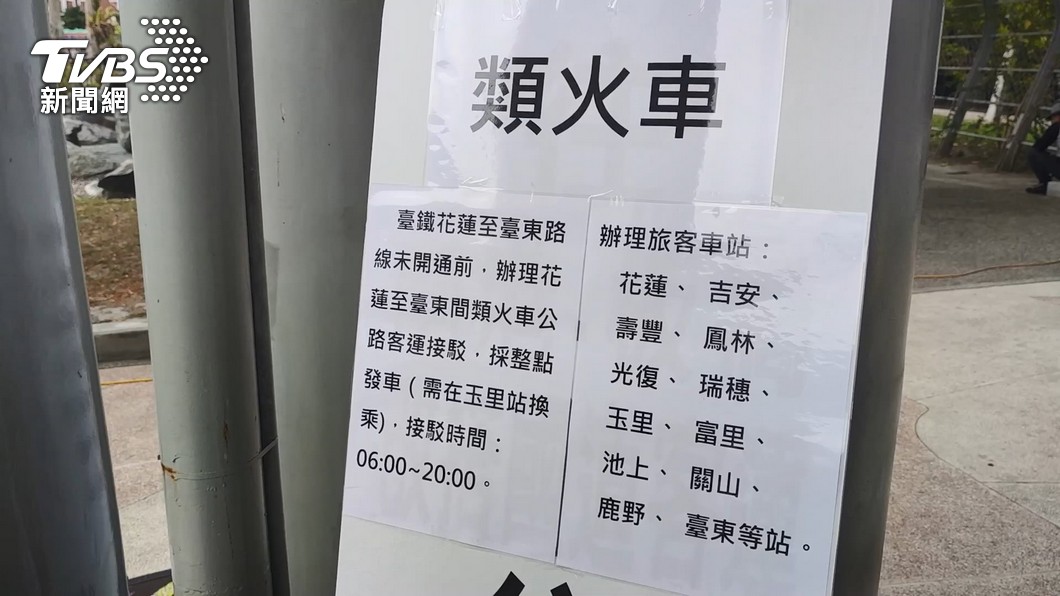 TVBS
新聞網
類火車
臺鐵花蓮至臺東路
線未開通前，辦理花
蓮至臺東間類火車公
路客運接駁，採整點
發車（需在玉里站換
乘)，接駁時間：
06:00~20:00。
辦理旅客車站：
花蓮、吉安、
壽豐、鳳林、
光復、瑞穗、
玉里、富里、
池上、關山、
鹿野、臺東等站。